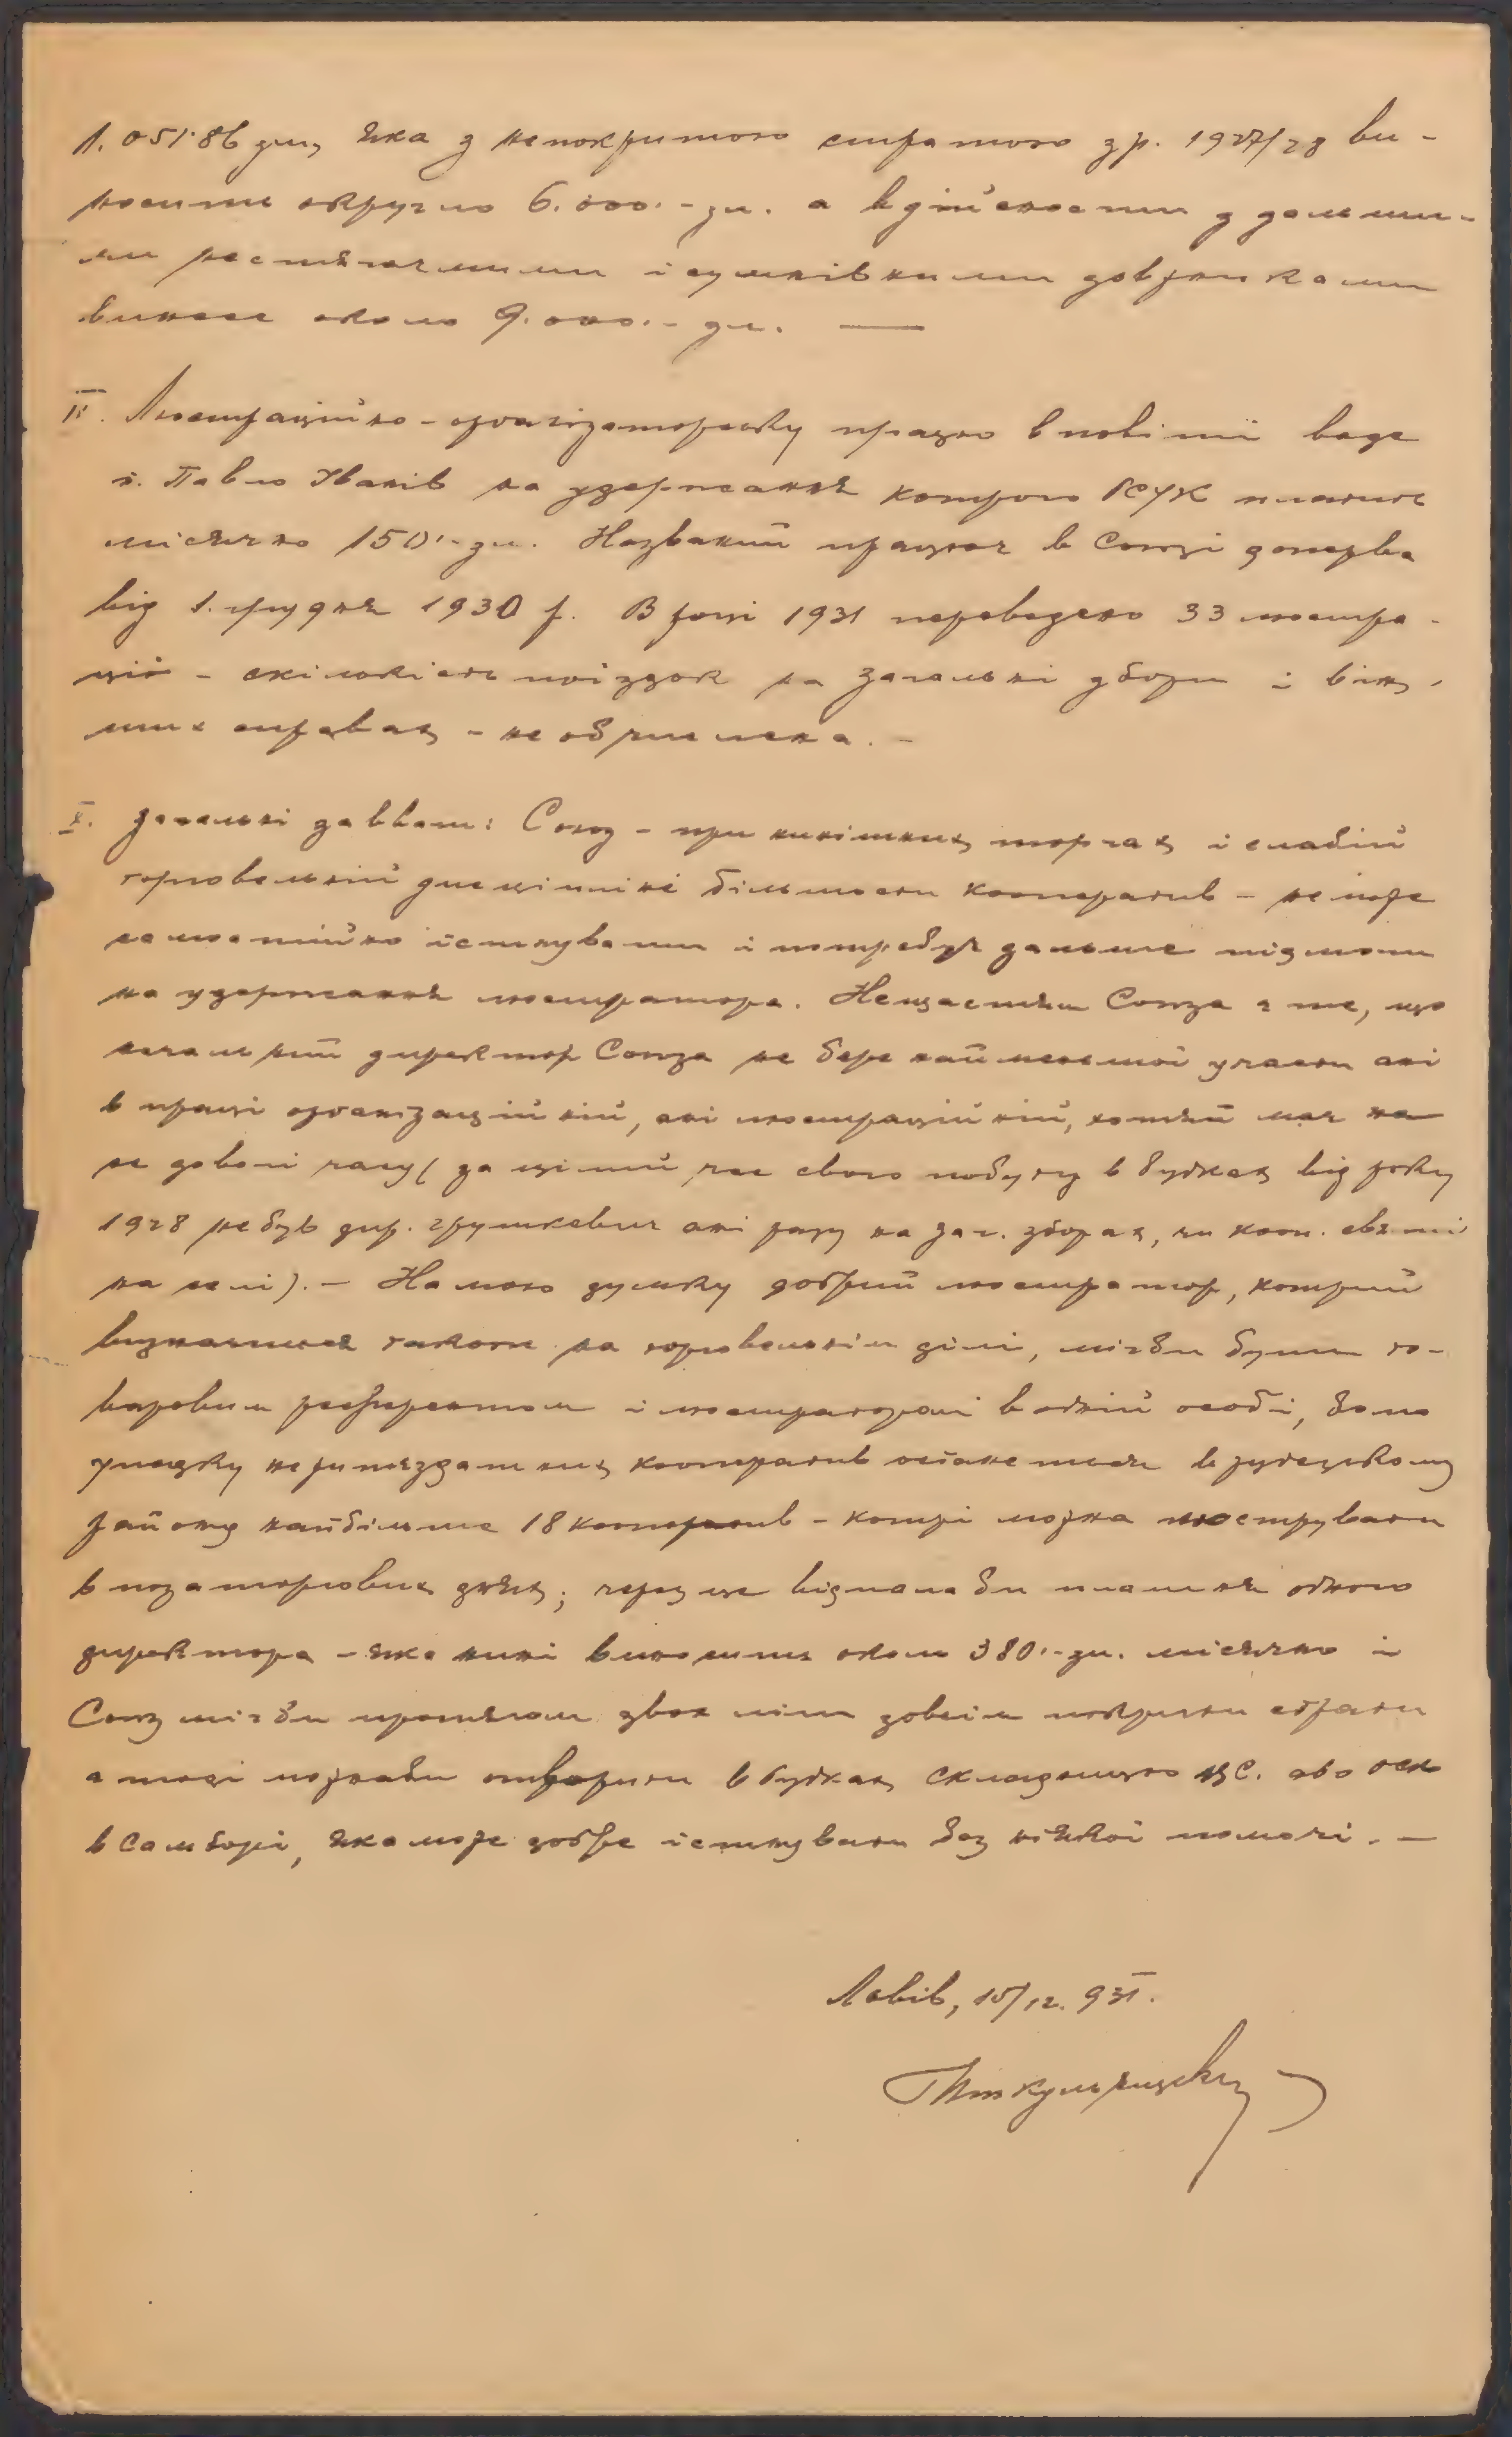 1.051·86 зл., яка з непокритою стратою з р. 1927/28 ви-
носить округло 6.000.- зл. а в дійсности з дальши-
ми нестягальними і сумнівними довжниками
винесе около 9.000.- зл. —
IX. Люстраційно-організаторську працю в повіті веде
п. Павло Іванів на удержання котрого РСУК платить
місячно 150·- зл. Названий працює в Союзі доперва
від 1. грудня 1930 р. В році 1931 переведено 33 люстра-
цій - скількість поїздок на загальні збори і в інь-
ших справах - не обчислена. -
X. Загальні завваги: Союз - при нинішних торгах і слабій
торговельній дисципліні більшости кооператив - не може
самостійно істнувати і потребує дальше підмоги
на удержання люстратора. Нещастям Союза є те, що
начальний директор Союза не бере найменьшої участи ані
в праці організаційній, ані люстраційній, хотяй має на
се доволі часу (за цілий час свого побуту в Рудках від року
1928 не був дир. Грушкевич ані разу на заг. зборах, чи кооп. святі
на селі). - На мою думку добрий люстратор, котрий
визнається також на торговельнім ділі, міг би бути то-
варовим референтом і люстратором в одній особі, бо по
упадку нежиттєздатних кооператив остане тися в рудецькому
районі найбільше 18 кооператив - котрі можна люструвати
в позаторгових днях; через це відпала би платня одного
директора - яка нині виносить около 380·- зл. місячно і
Союз міг би протягом двох літ зовсім покрити страти
а тоді можнаби створити в Рудках складницю ЦС. або ОСК
в Самборі, яка може добре істнувати без ніякої помочі. -
Львів, 15/12. 931.